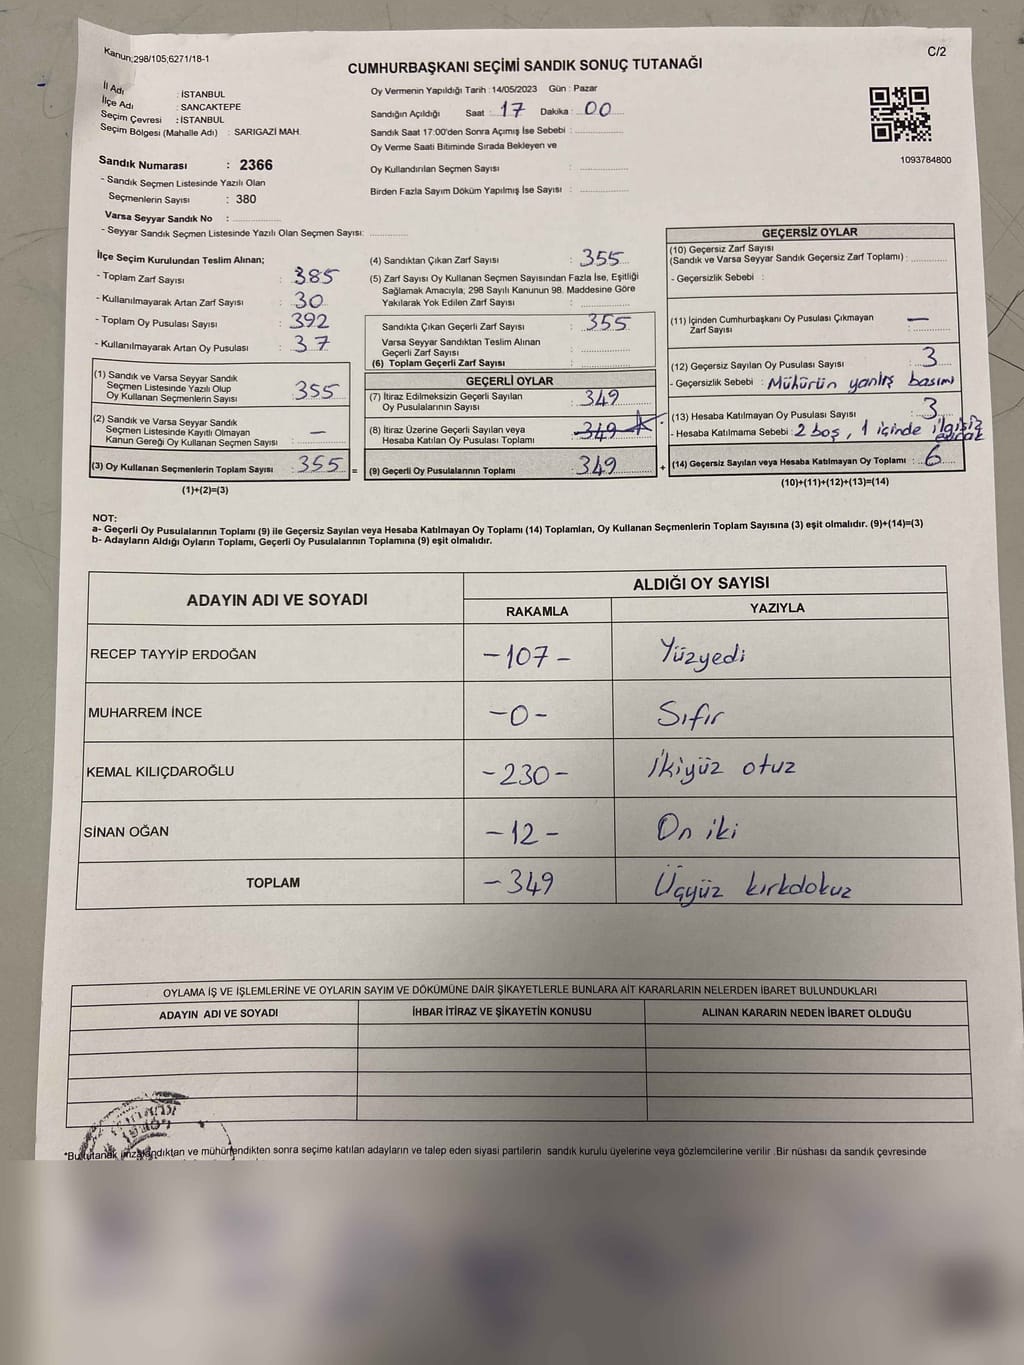 Kanun;298/105;6271/18-1
C/2
CUMHURBAŞKANI SEÇİMİ SANDIK SONUÇ TUTANAĞI
İl Adı : İSTANBUL
İlçe Adı : SANCAKTEPE
Seçim Çevresi : İSTANBUL
Seçim Bölgesi (Mahalle Adı) : SARIGAZİ MAH.
Sandık Numarası : 2366
- Sandık Seçmen Listesinde Yazılı Olan
Seçmenlerin Sayısı : 380
Varsa Seyyar Sandık No :
- Seyyar Sandık Seçmen Listesinde Yazılı Olan Seçmen Sayısı:
Oy Vermenin Yapıldığı Tarih : 14/05/2023 Gün : Pazar
Sandığın Açıldığı Saat : 17 Dakika : 00
Sandık Saat 17:00'den Sonra Açımış İse Sebebi :
Oy Verme Saati Bitiminde Sırada Bekleyen ve
Oy Kullandırılan Seçmen Sayısı :
Birden Fazla Sayım Döküm Yapılmış İse Sayısı :
1093784800
İlçe Seçim Kurulundan Teslim Alınan;
- Toplam Zarf Sayısı : 385
- Kullanılmayarak Artan Zarf Sayısı : 30
- Toplam Oy Pusulası Sayısı : 392
- Kullanılmayarak Artan Oy Pusulası : 37
(1) Sandık ve Varsa Seyyar Sandık
Seçmen Listesinde Yazılı Olup
Oy Kullanan Seçmenlerin Sayısı : 355
(2) Sandık ve Varsa Seyyar Sandık
Seçmen Listesinde Kayıtlı Olmayan
Kanun Gereği Oy Kullanan Seçmen Sayısı : —
(3) Oy Kullanan Seçmenlerin Toplam Sayısı : 355 =
(1)+(2)=(3)
(4) Sandıktan Çıkan Zarf Sayısı : 355
(5) Zarf Sayısı Oy Kullanan Seçmen Sayısından Fazla İse, Eşitliği
Sağlamak Amacıyla; 298 Sayılı Kanunun 98. Maddesine Göre
Yakılarak Yok Edilen Zarf Sayısı :
Sandıkta Çıkan Geçerli Zarf Sayısı : 355
Varsa Seyyar Sandıktan Teslim Alınan
Geçerli Zarf Sayısı :
(6) Toplam Geçerli Zarf Sayısı :
GEÇERLİ OYLAR
(7) İtiraz Edilmeksizin Geçerli Sayılan
Oy Pusulalarının Sayısı : 349
(8) İtiraz Üzerine Geçerli Sayılan veya
Hesaba Katılan Oy Pusulası Toplamı : 349
(9) Geçerli Oy Pusulalarının Toplamı : 349 +
GEÇERSİZ OYLAR
(10) Geçersiz Zarf Sayısı
(Sandık ve Varsa Seyyar Sandık Geçersiz Zarf Toplamı) :
- Geçersizlik Sebebi :
(11) İçinden Cumhurbaşkanı Oy Pusulası Çıkmayan
Zarf Sayısı : —
(12) Geçersiz Sayılan Oy Pusulası Sayısı : 3
- Geçersizlik Sebebi : Mühürün yanlış basımı
(13) Hesaba Katılmayan Oy Pusulası Sayısı : 3
- Hesaba Katılmama Sebebi : 2 boş, 1 içinde ilgisiz
evrak
(14) Geçersiz Sayılan veya Hesaba Katılmayan Oy Toplamı : 6
(10)+(11)+(12)+(13)=(14)
NOT:
a- Geçerli Oy Pusulalarının Toplamı (9) ile Geçersiz Sayılan veya Hesaba Katılmayan Oy Toplamı (14) Toplamları, Oy Kullanan Seçmenlerin Toplam Sayısına (3) eşit olmalıdır. (9)+(14)=(3)
b- Adayların Aldığı Oyların Toplamı, Geçerli Oy Pusulalarının Toplamına (9) eşit olmalıdır.
ADAYIN ADI VE SOYADI
ALDIĞI OY SAYISI
RAKAMLA YAZIYLA
RECEP TAYYİP ERDOĞAN -107- Yüzyedi
MUHARREM İNCE -0- Sıfır
KEMAL KILIÇDAROĞLU -230- İkiyüz otuz
SİNAN OĞAN -12- On iki
TOPLAM -349 Üçyüz kırkdokuz
OYLAMA İŞ VE İŞLEMLERİNE VE OYLARIN SAYIM VE DÖKÜMÜNE DAİR ŞİKAYETLERLE BUNLARA AİT KARARLARIN NELERDEN İBARET BULUNDUKLARI
ADAYIN ADI VE SOYADI İHBAR İTİRAZ VE ŞİKAYETİN KONUSU ALINAN KARARIN NEDEN İBARET OLDUĞU
*Bu tutanak imzalandıktan ve mühürlendikten sonra seçime katılan adayların ve talep eden siyasi partilerin sandık kurulu üyelerine veya gözlemcilerine verilir .Bir nüshası da sandık çevresinde